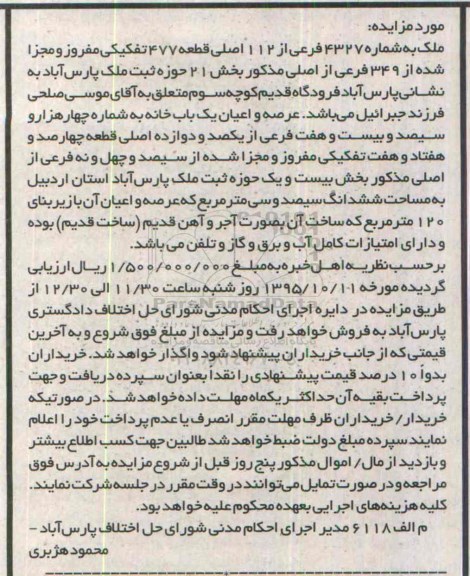 مورد مزایده:
ملک به شماره ۴۳۲۷ فرعی از ۱۱۲ اصلی قطعه ۴۷۷ تفکیکی مفروز و مجزا
شده از ۳۴۹ فرعی از اصلی مذکور بخش ۲۱ حوزه ثبت ملک پارس آباد به
نشانی پارس آباد فرودگاه قدیم کوچه سوم متعلق به آقای موسی صلحی
فرزند جبرائیل می باشد. عرصه و اعیان یک باب خانه به شماره چهار هزار و
سیصد و بیست و هفت فرعی از یکصد و دوازده اصلی قطعه چهارصد و
هفتاد و هفت تفکیکی مفروز و مجزا شده از سیصد و چهل و نه فرعی از
اصلی مذکور بخش بیست و یک حوزه ثبت ملک پارس آباد استان اردبیل
به مساحت ششدانگ سیصد و سی متر مربع که عرصه و اعیان آن با زیربنای
۱۲۰ متر مربع که ساخت آن بصورت آجر و آهن قدیم (ساخت قدیم) بوده
و دارای امتیازات کامل آب و برق و گاز و تلفن می باشد.
بر حسب نظریه اهل خبره به مبلغ ۱/۵۰۰/۰۰۰/۰۰۰ ریال ارزیابی
گردیده مورخه ۱۳۹۵/۱۰/۱۱ روز شنبه ساعت ۱۱/۳۰ الی ۱۲/۳۰ از
طریق مزایده در دایره اجرای احکام مدنی شورای حل اختلاف دادگستری
پارس آباد به فروش خواهد رفت و مزایده از مبلغ فوق شروع و به آخرین
قیمتی که از جانب خریداران پیشنهاد شود واگذار خواهد شد. خریداران
بدوا ۱۰ درصد قیمت پیشنهادی را نقدا بعنوان سپرده دریافت و جهت
پرداخت بقیه آن حداکثر یکماه مهلت داده خواهد شد. در صورتیکه
خریدار/ خریداران ظرف مهلت مقرر انصرف یا عدم پرداخت خود را اعلام
نمایند سپرده مبلغ دولت ضبط خواهد شد طالبین جهت کسب اطلاع بیشتر
و بازدید از مال/ اموال مذکور پنج روز قبل از شروع مزایده به آدرس فوق
مراجعه و در صورت تمایل می توانند در وقت مقرر در جلسه شرکت نمایند.
کلیه هزینه های اجرایی بعهده محکوم علیه خواهد بود.
م الف ۶۱۱۸ مدیر اجرای احکام مدنی شورای حل اختلاف پارس آباد -
محمود هژبری